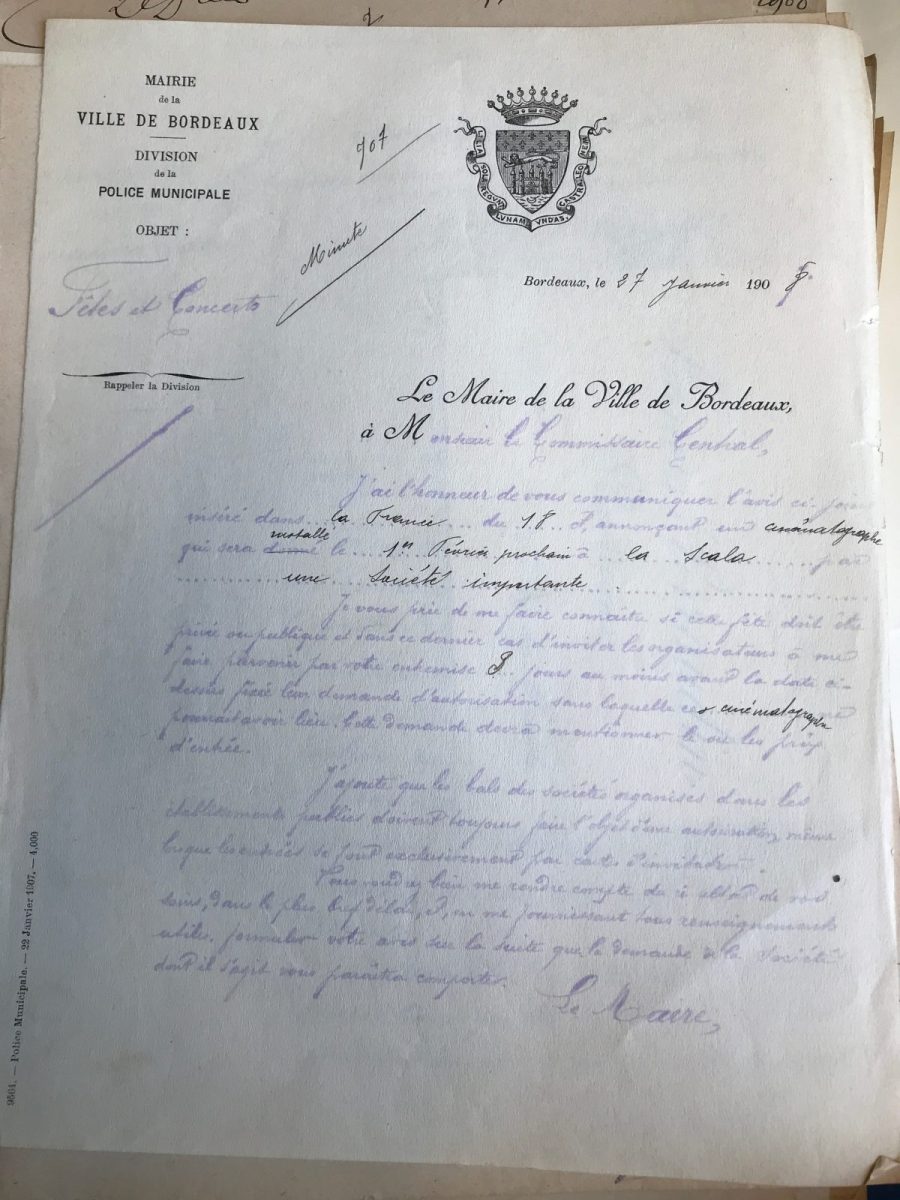 1908
2
MAIRIE
de la
VILLE DE BORDEAUX
DIVISION
de la
POLICE MUNICIPALE
OBJET :
Fêtes et Concerts
Rappeler la Division
907
Minute
LILIA SOLA REGUNT LUNAM UNDAS CASTRA LEONEM
Bordeaux, le 27 Janvier 1908
Le Maire de la Ville de Bordeaux,
à Monsieur le Commissaire Central,
J'ai l'honneur de vous communiquer l'avis ci-joint
inséré dans la France du 18 &, annonçant un cinématographe
installé
qui sera donné le 1er Février prochain à la Scala par
une Société importante.
Je vous prie de me faire connaître si cette fête doit être
privée ou publique et dans ce dernier cas d'inviter les organisateurs à me
faire parvenir par votre entremise 8 jours au moins avant la date ci-
dessus fixée leur demande d'autorisation sans laquelle ce cinématographe ne
pourrait avoir lieu. Cette demande devra mentionner le ou les prix
d'entrée.
J'ajoute que les bals des sociétés organisés dans les
établissements publics doivent toujours faire l'objet d'une autorisation, même
lorsque les entrées se font exclusivement par cartes d'invitation.
Vous voudrez bien me rendre compte du résultat de vos
soins, dans le plus bref délai, et, en me fournissant tous renseignements
utiles, formuler votre avis sur la suite que la demande de la Société
dont il s'agit vous paraîtra comporter.
Le Maire,
9561. — Police Municipale. — 22 Janvier 1907. — 4,000